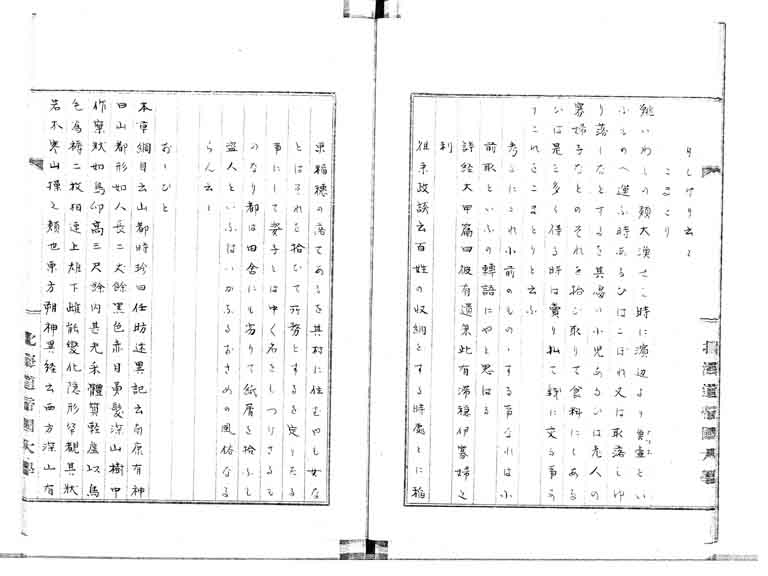 こまとり
鰯いわしの類大漁きこ時に濱辺より貫査とい
ふものへ運ふ時あるひはこぼれ又は取落しゆ
り落しなとするを其處の小児あるひは老人の
寡婦子なとのそれを拾ひ取りて食料にしある
ひは是を多く得る時は賣り払て銭に交る事有
りこれをこまとりと云ふ
考るにこれ小前のものゝする事なれは小
前取といふの轉語にやと思はる
詩経大甲篇曰彼有遺秉此有滞穂伊寡婦之
利
従来政談云百姓の収納とする時處々に稲
束稲穂の落てあるを其村に住むやも女な
とはそれを拾ひて所務とするを定りたる
事にして妾子とは中く名をしつりさるも
のなり都は田舎にも劣りて紙屑を拾ふも
盗人といふはいかなるおさめの風俗なる
らん云々
おゝひと
本草綱目云山都時珍曰任昉述異記云南康有神
曰山都形如人長二丈餘黒色赤目黄髪深山樹中
作窠状如鳥卵高三尺餘内甚光采體質軽虚以鳥
毛為褥二枚相連上雄下雌能變化隠形罕覩其状
若木客山𤢖之類也東方朔神異経云西方深山有